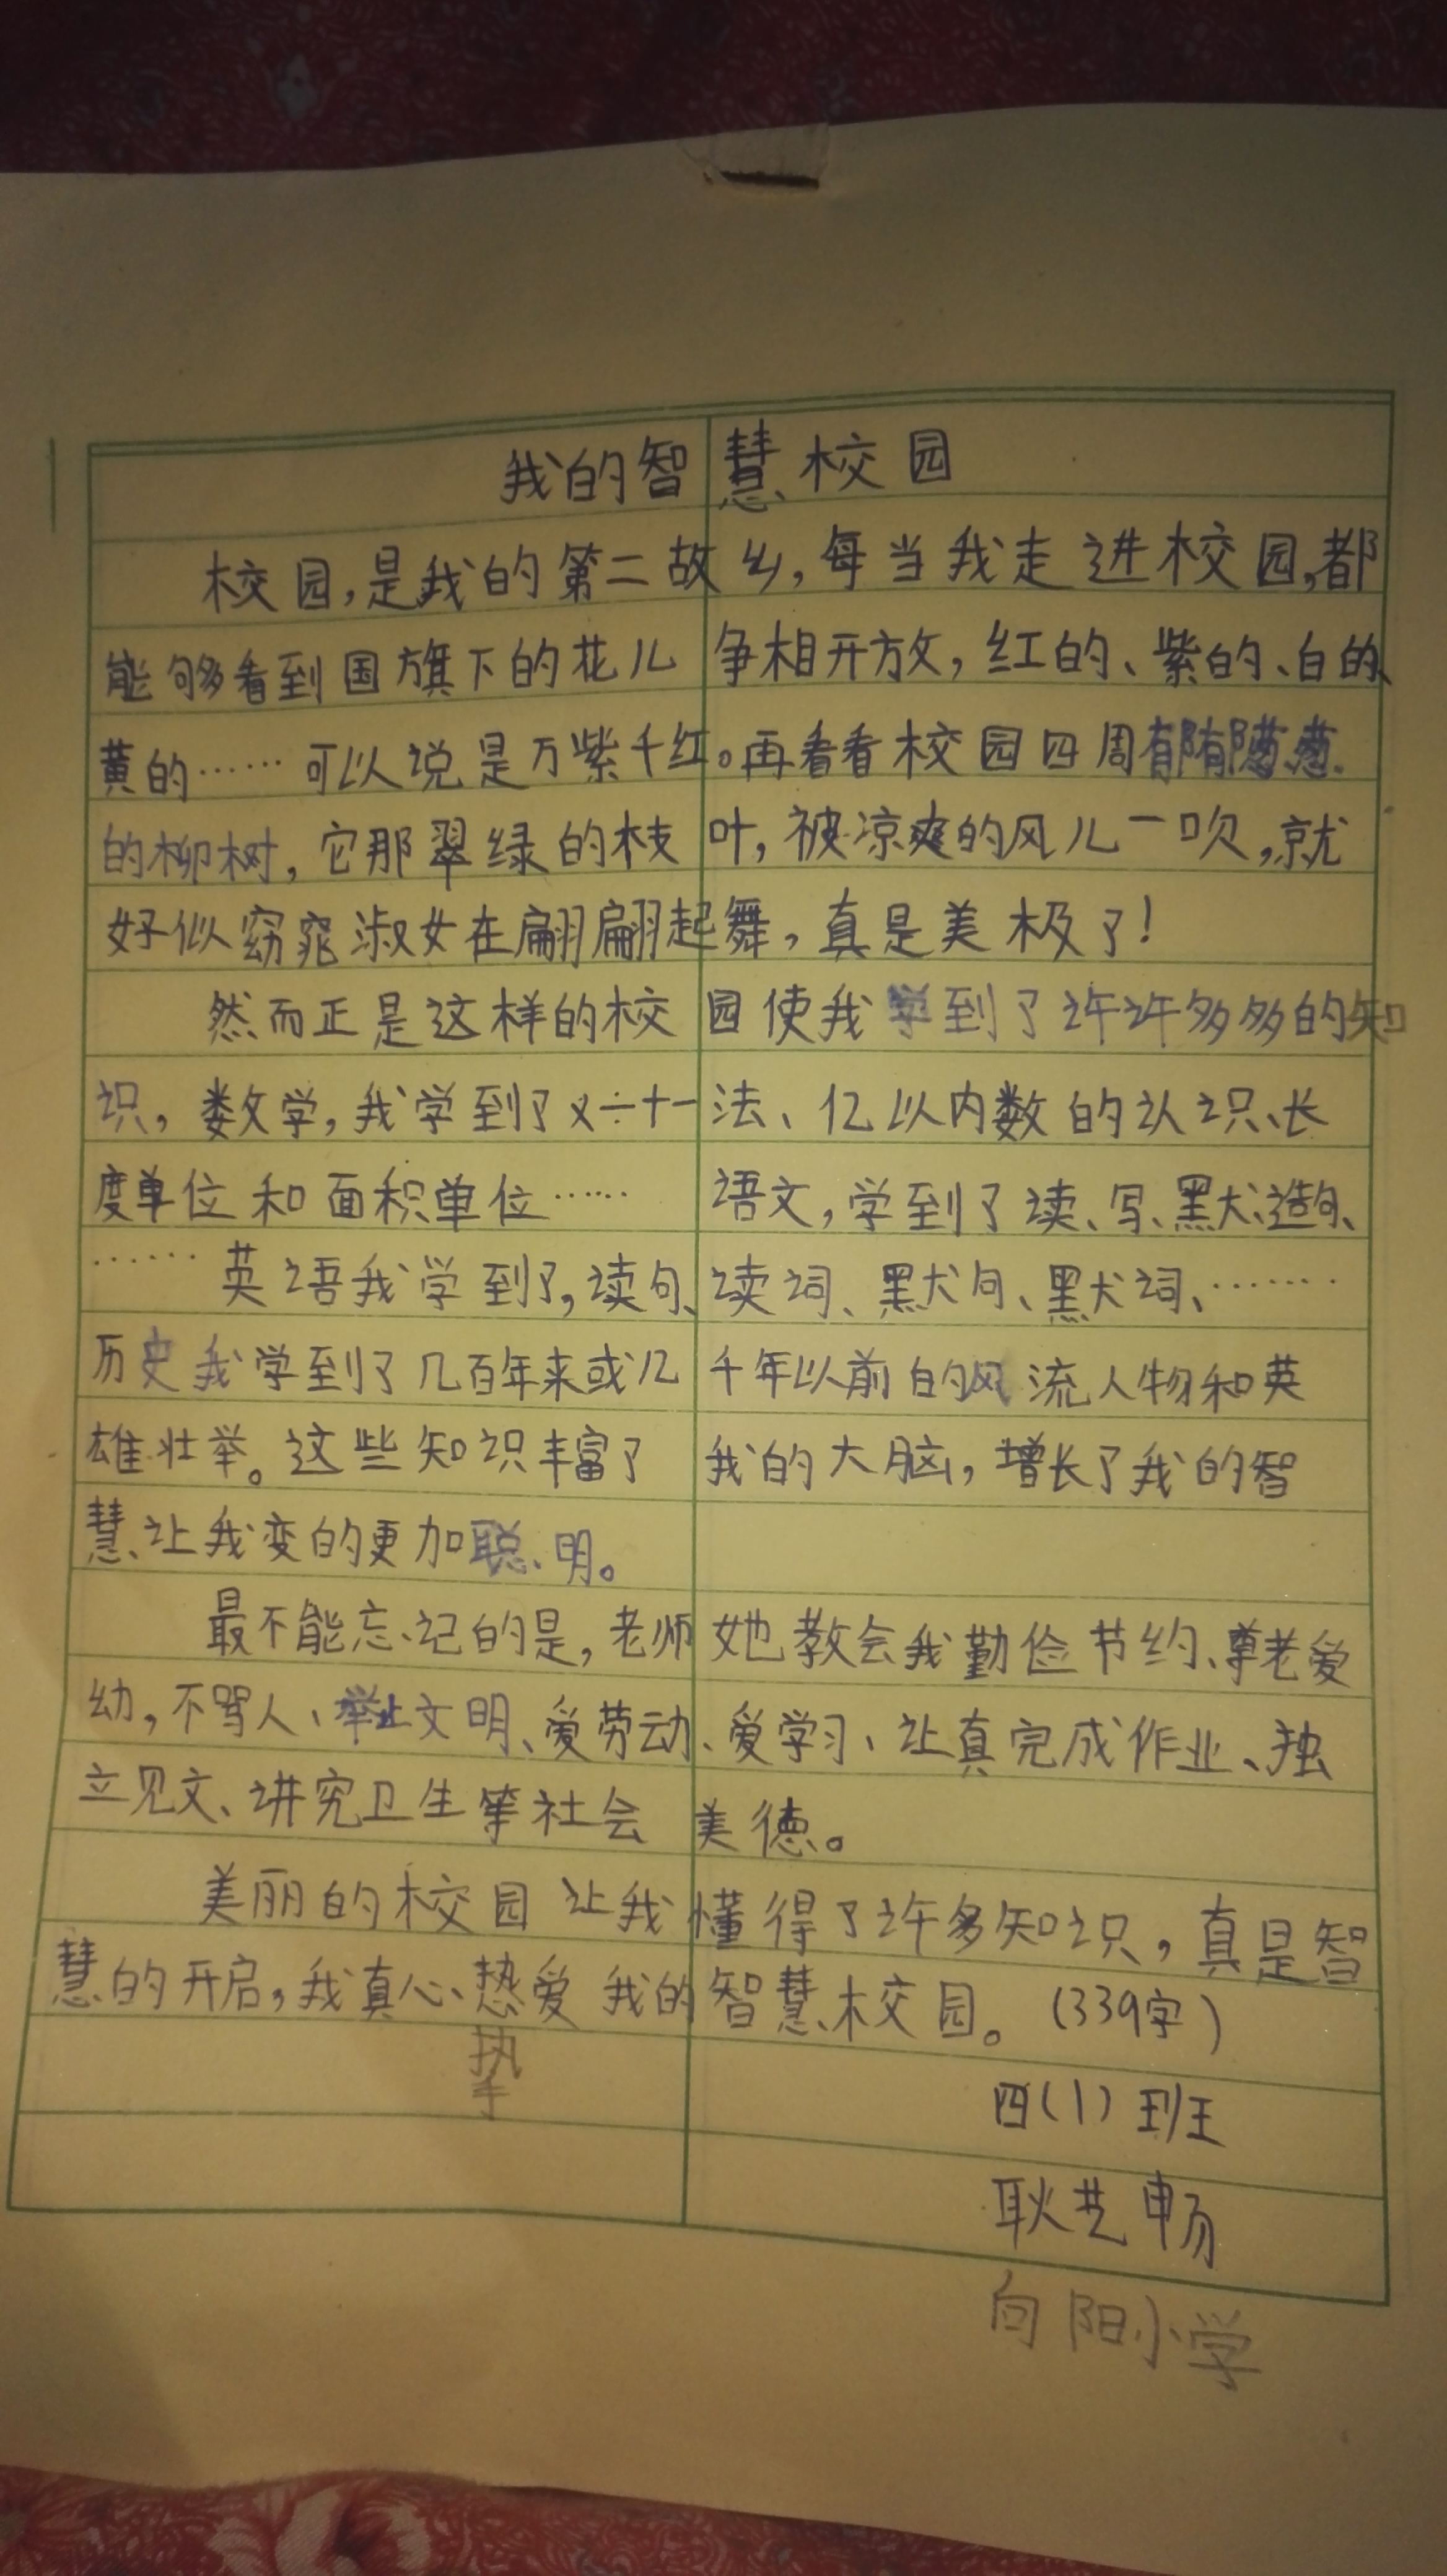 我的智慧校园
校园,是我的第二故乡,每当我走进校园,都
能够看到国旗下的花儿争相开放,红的、紫的、白的、
黄的……可以说是万紫千红。再看看校园四周郁郁葱葱
的柳树,它那翠绿的枝叶,被凉爽的风儿一吹,就
好似窈窕淑女在翩翩起舞,真是美极了!
然而正是这样的校园使我学到了许许多多的知
识,数学,我学到了×÷+-法、亿以内数的认识、长
度单位和面积单位……语文,学到了读、写、默、造句、
……英语我学到了,读句、读词、默句、默词、……
历史我学到了几百年来或几千年以前的风流人物和英
雄壮举。这些知识丰富了我的大脑,增长了我的智
慧、让我变的更加聪明。
最不能忘记的是,老师她教会我勤俭节约、尊老爱
幼,不骂人、举止文明、爱劳动、爱学习、让真完成作业、独
立见文、讲究卫生等社会美德。
美丽的校园让我懂得了许多知识,真是智
慧的开启,我真心热爱我的智慧校园。(339字)
挚
四(1)班
耿艺畅
向阳小学